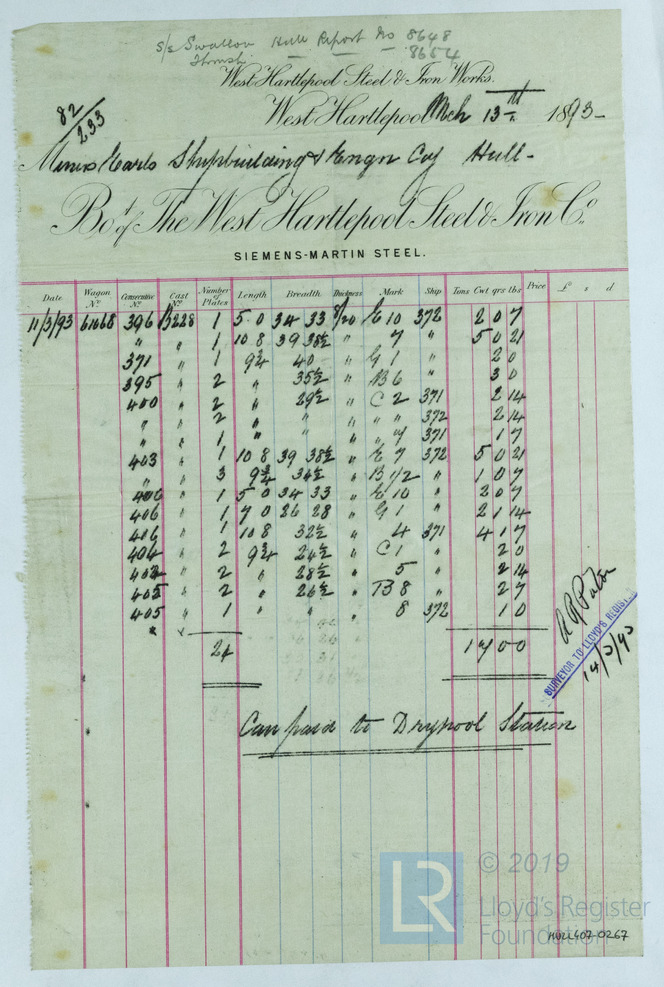 s/s Swallow Hull Report No 8648
Thrush 8654
West Hartlepool Steel & Iron Works.
West Hartlepool Mch 13th 1893-
82/233
Messrs Earls Shipbuilding & Engn Coy Hull-
Bot of The West Hartlepool Steel & Iron Co.
SIEMENS-MARTIN STEEL.
Date Wagon No. Consecutive No. Cast No. Number of Plates Length Breadth Thickness Mark Ship Tons Cwt qrs lbs Price £ s d
11/3/93 61068 396 B228 1 5 0 34 33 7/20 E 10 372 2 0 7
" " 1 10 8 39 38½ " 7 " 5 0 21
371 " 1 9¾ 40 " G 1 " 2 0
395 " 2 " 35½ " B 6 " 3 0
400 " 2 " 29½ " C 2 371 2 14
" " 2 " " " " " 372 2 14
" " 1 " " " " 4 371 1 7
403 " 1 10 8 39 38½ " E 7 372 5 0 21
" " 3 9¾ 34½ " B 1/2 " 1 0 7
406 " 1 5 0 34 33 " E 10 " 2 0 7
406 " 1 7 0 26 28 " G 1 " 2 1 14
406 " 1 10 8 32½ " 4 371 4 1 7
404 " 2 9¾ 24½ " C 1 " 2 0
402 " 2 " 28½ " 5 " 2 14
405 " 2 " 26½ " B 8 " 2 7
405 " 1 " " " 8 372 1 0
24 1 7 0 0
SURVEYOR TO LLOYD'S REGIST
14/3/93
Carr paid to Drypool Station
LR © 2019
Lloyd's Register
Foundation
HUL407-0267